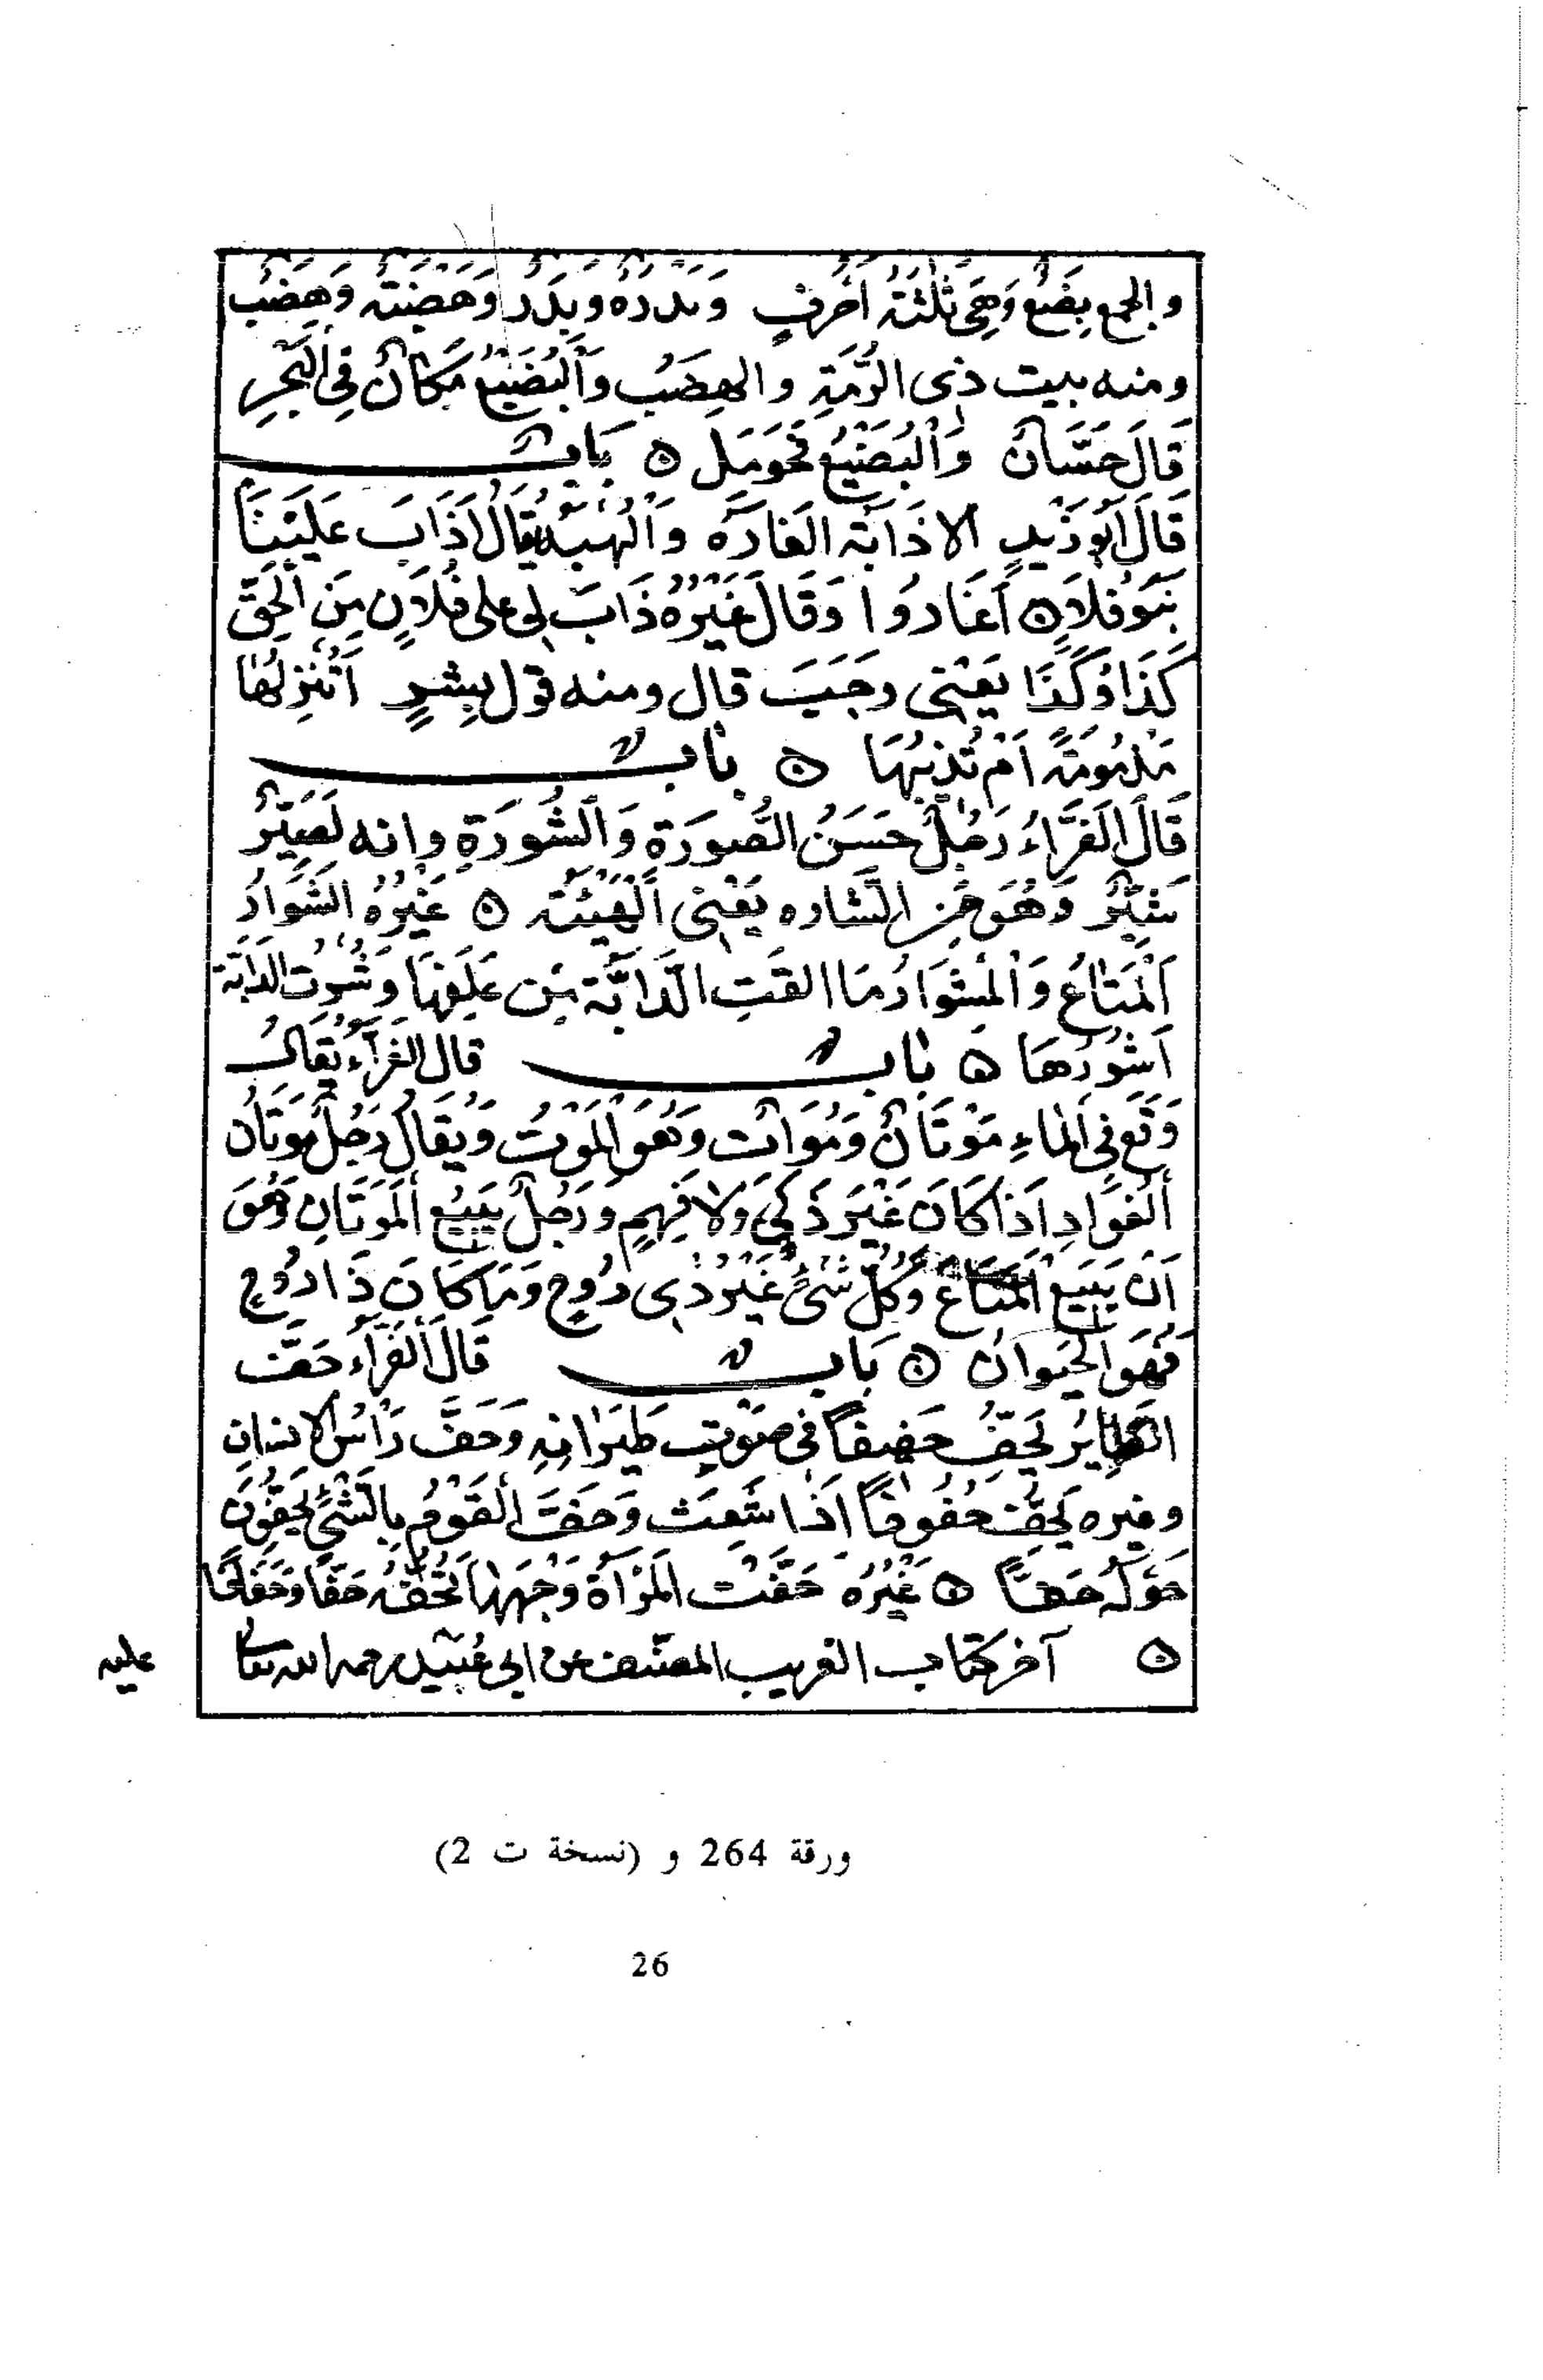 والجمع بِضَعٌ وَهِيَ ثلٰثَةُ اَحْرُفٍ وَبَدْرَةٌ وبِدَرٌ وَهَضْبَةٌ وَهِضَبٌ
ومنه بيت ذى الرُّمَّةِ والهِضَبُ وَالْبُضَيْعُ مَكَانٌ فِى الْبَحْرِ
قَالَ حَسَّانٌ وَالْبُضَيْعُ فَحَوْمَل ۞ بَابٌ
قَالَ اَبُو زَيْدٍ الاذَابَة الغَارَةُ وَالنُّهْبَةُ يُقَالُ اَذَابَ عَلَيْنَا
بَنُو فُلَانٍ اَغَارُوا وَقَالَ غَيْرُهُ ذَابَ لِى على فُلَانٍ مِنَ الْحَقِّ
كَذَا وَكَذَا يَعْنِى وَجَبَ قال ومنه قول بِشْرٍ اَتُنْزِلُهَا
مَذْمُومَةً اَمْ تُذِيبُهَا ۞ بَابٌ
قَالَ الْفَرَّاءُ رَجُلٌ حَسَنُ الصُّورَةِ وَالشُّورَةِ وانه لَصَيِّرٌ
شَيِّرٌ وَهُوَ مِنَ الشَّاره يَعْنِى الْهَيْئَة ۞ غَيْرُهُ الشَّوَارُ
الْمَتَاعُ وَالْمِشْوَارُ مَا القَتِ الدَّابَّة مِن عَلَفِهَا وَشُرْتُ الدَابَّة
اَشُورُهَا ۞ بَابٌ قَال الفَرَّاءُ يُقَالُ
وَقَع فِى الْمَاءِ مَوْتَانٌ وَمُوَاتٌ وَهُوَ الْمَوْتُ وَيُقَالُ رَجُلٌ مَوْتَانُ
الْفُوَادِ اِذَا كَانَ غَيْرَ ذَكِىٍّ وَلا فَهِمٍ وَرَجُلٌ يَبِيعُ الْمَوَتَانِ وَهُوَ
اَنْ يَبِيعَ الْمَتَاعَ وَكُلَّ شَىْءٍ غَيْرَ ذِى رُوحٍ وَمَا كَانَ ذَا رُوحٍ
فَهُوَ الْحَيَوانُ ۞ بَابٌ قَالَ الْفَرَّاء حَفَّ
الطَّايِرُ يَحِفُّ حَفِيفًا فى صَوْتِ طَيَرَانِهِ وَحَفَّ رَأْسُ الانسَانِ
وغيره يَحِفُّ حُفُوفًا اِذَا شَعِثَ وَحَفَّ الْقَوْمُ بِالشَّىْءِ يَحُفُّونَ
حَوْلَهُ حَفًّا ۞ غَيْرُهُ حَفَّتِ الْمَرْأَةُ وَجْهَهَا تَحُفُّهُ حَفًّا وَحِفَافًا
۞ آخر كتاب الغريب المصنف عن ابى عُبَيْدٍ رحمه الله تعالى
عليه
ورقة 264 و (نسخة ت 2)
26